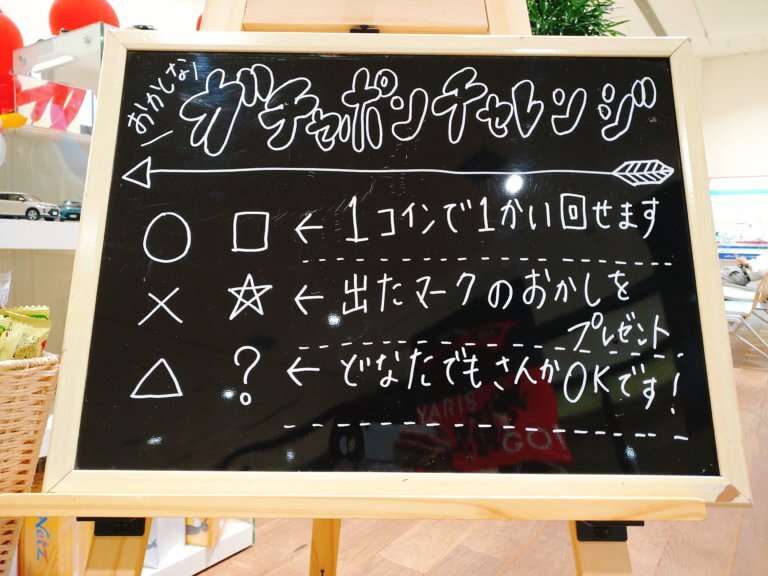 おかしな!
ガチャポンチャレンジ
○ □ ← 1コインで1かい回せます
× ☆ ← 出たマークのおかしを
プレゼント
△ ? ← どなたでもさんかOKです!
YARIS
GO!
Netz